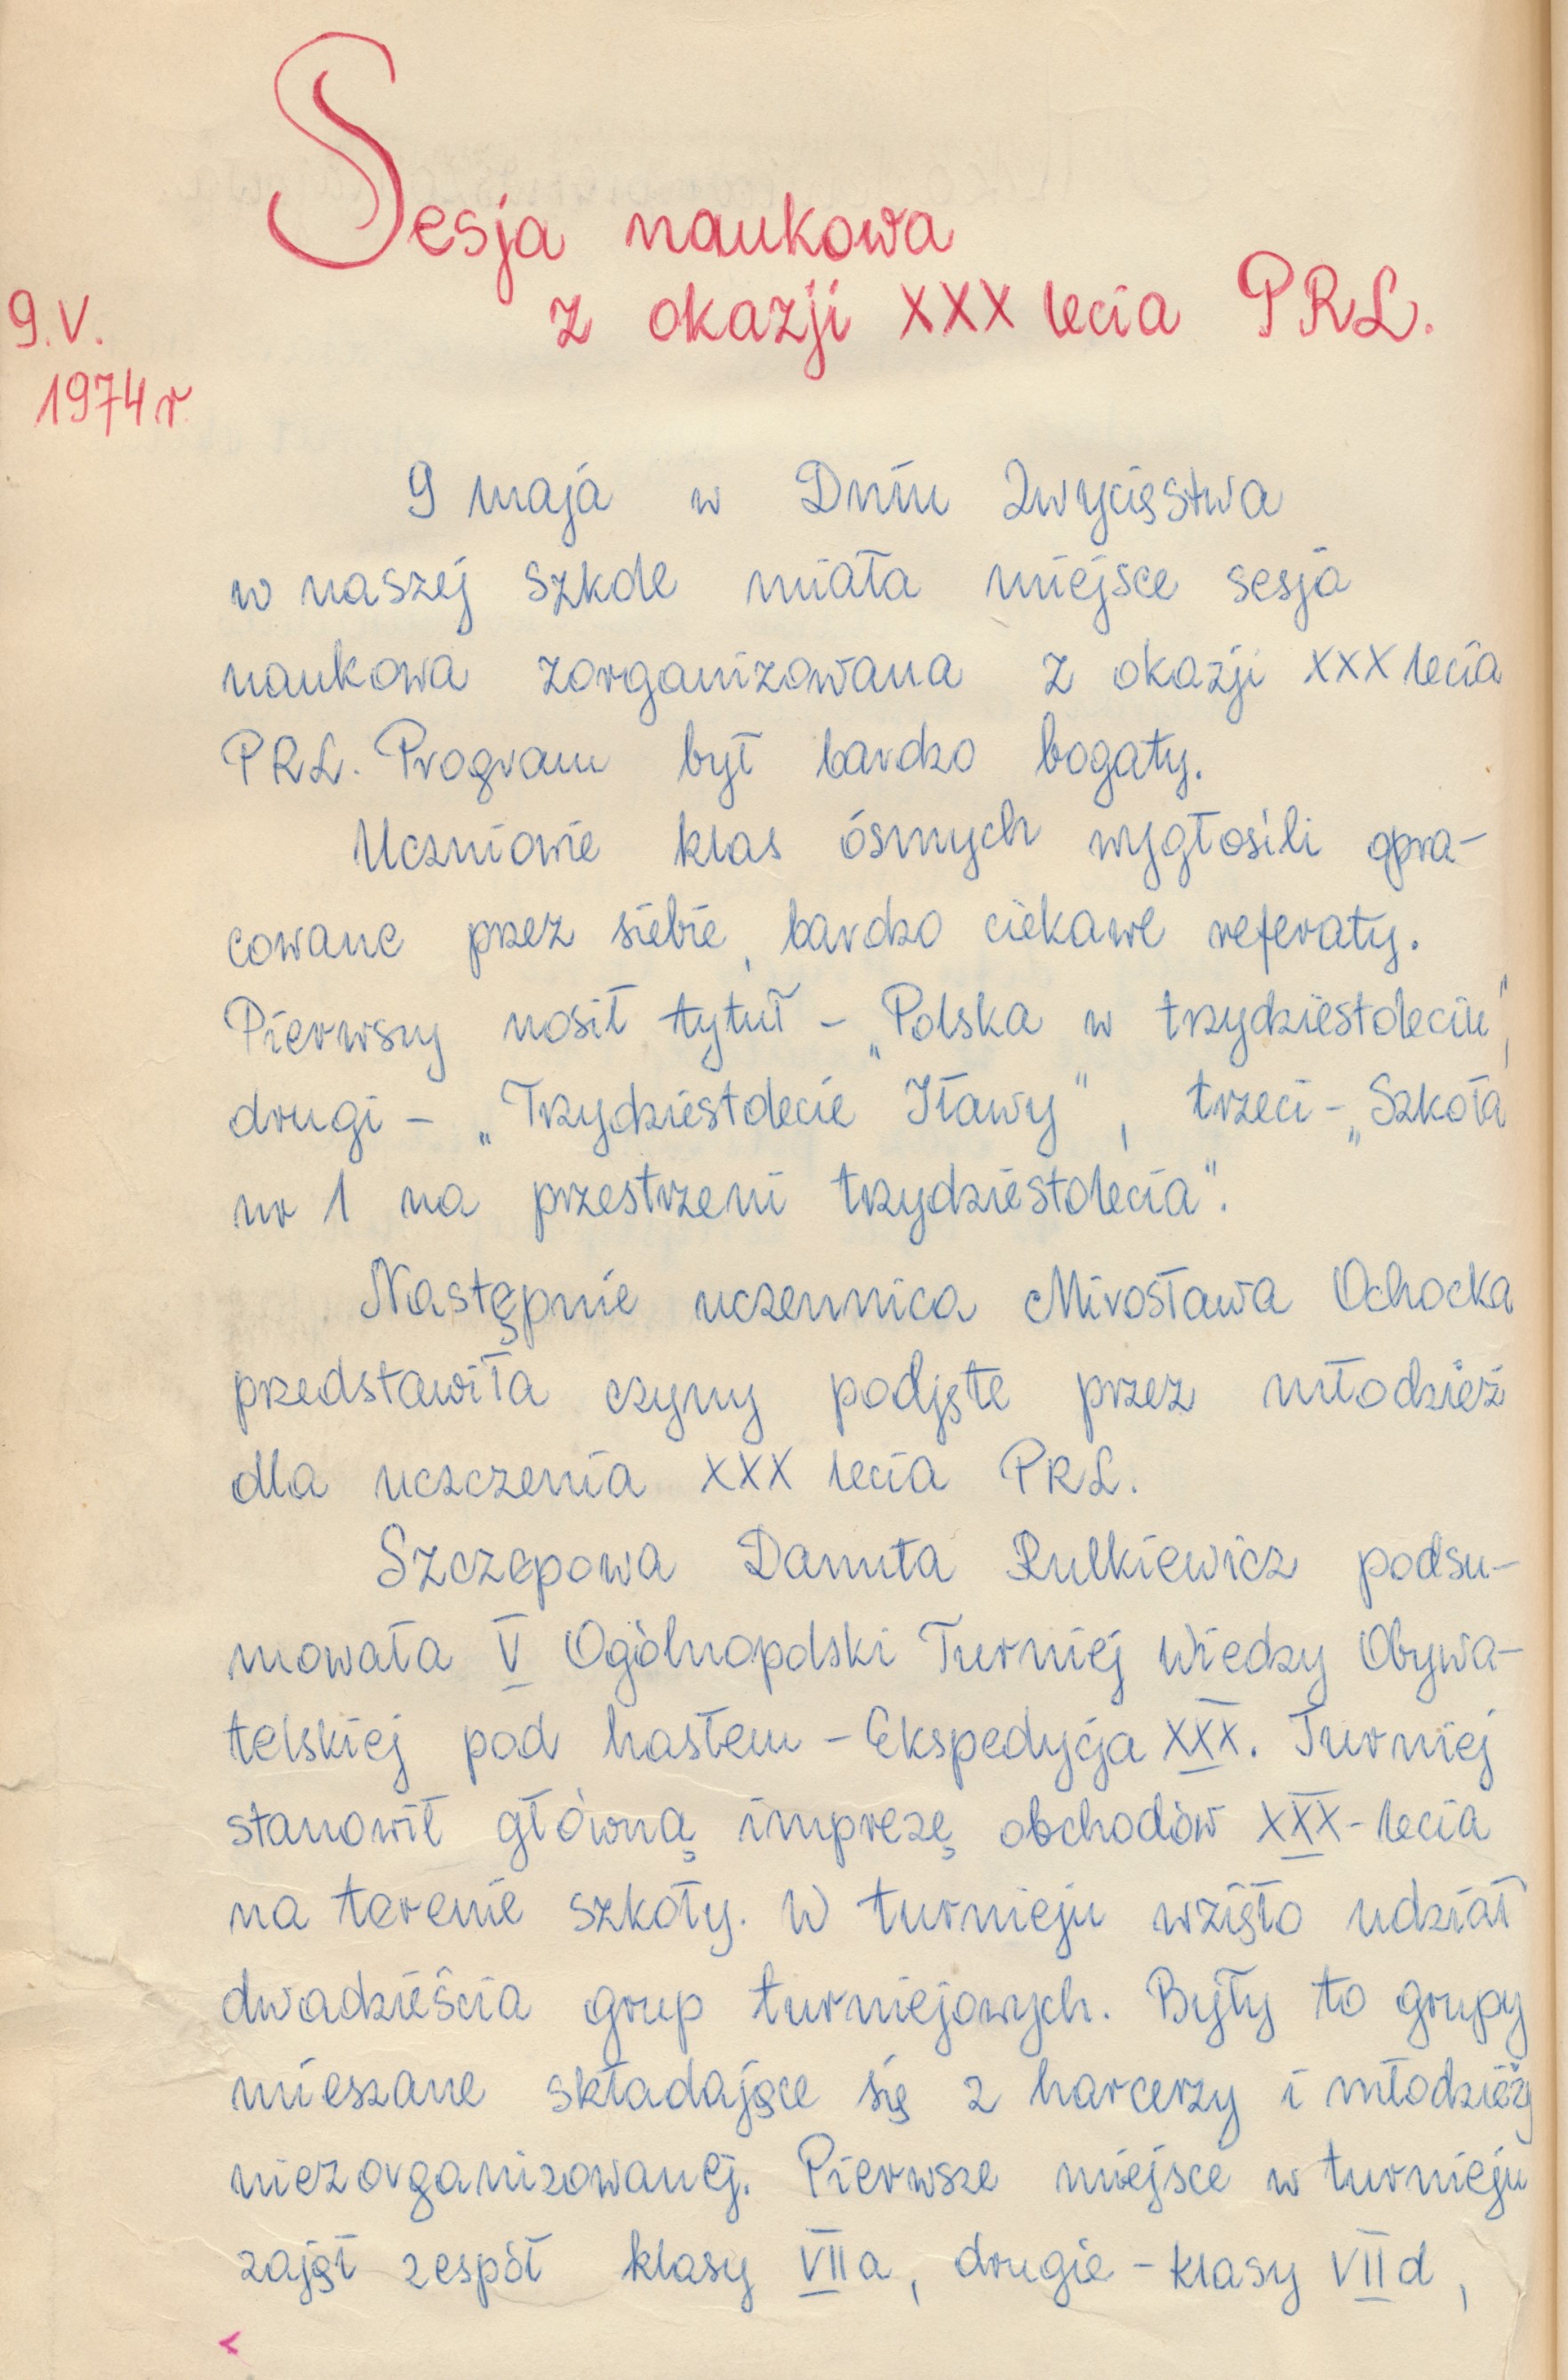 Sesja naukowa
z okazji XXX lecia PRL.
9.V.
1974 r
9 maja w Dniu Zwycięstwa
w naszej szkole miała miejsce sesja
naukowa zorganizowana z okazji XXX lecia
PRL. Program był bardzo bogaty.
Uczniowie klas ósmych wygłosili opra-
cowane przez siebie, bardzo ciekawe referaty.
Pierwszy nosił tytuł - „Polska w trzydziestoleciu",
drugi - „Trzydziestolecie Iławy", trzeci - „Szkoła
nr 1 na przestrzeni trzydziestolecia".
Następnie uczennica Mirosława Ochocka
przedstawiła czyny podjęte przez młodzież
dla uczczenia XXX lecia PRL.
Szczepowa Danuta Rulkiewicz podsu-
mowała V Ogólnopolski Turniej Wiedzy Obywa-
telskiej pod hasłem - Ekspedycja XXX. Turniej
stanowił główną imprezę obchodów XXX-lecia
na terenie szkoły. W turnieju wzięło udział
dwadzieścia grup turniejowych. Były to grupy
mieszane składające się z harcerzy i młodzieży
niezorganizowanej. Pierwsze miejsce w turnieju
zajął zespół klasy VII a, drugie - klasy VII d,